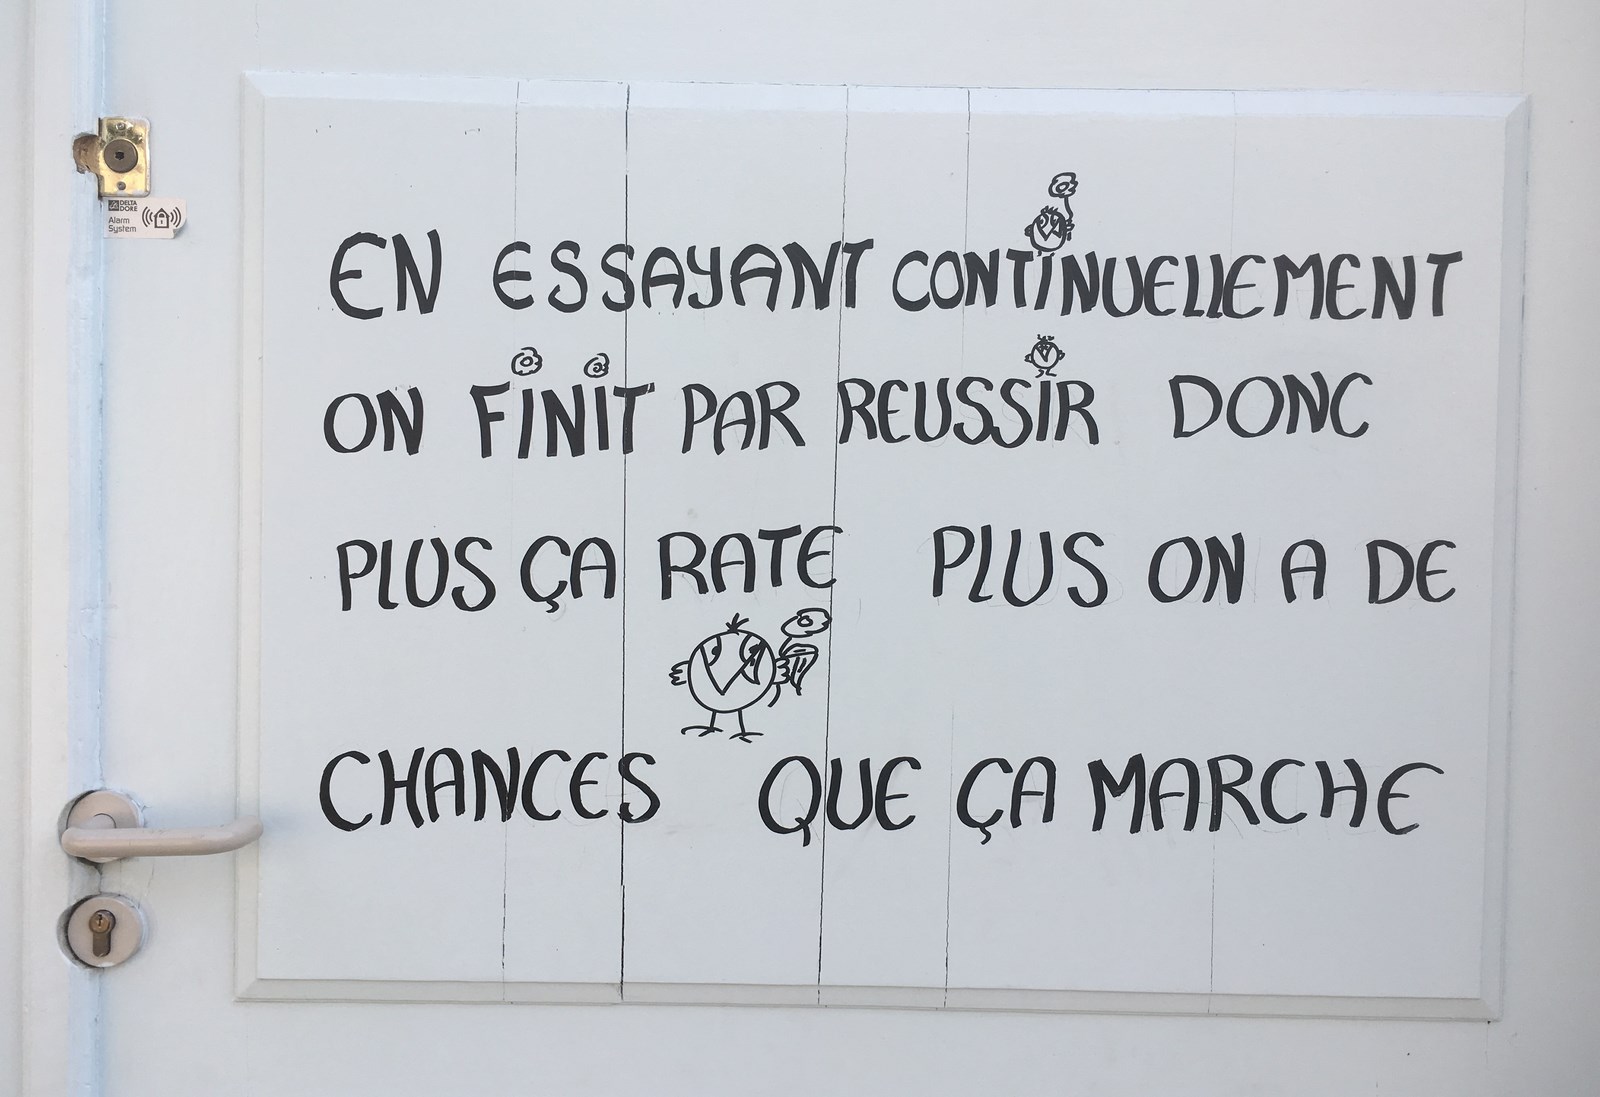 DELTA
DORE
Alarm
System
EN ESSAYANT CONTINUELLEMENT
ON FINIT PAR REUSSIR DONC
PLUS ÇA RATE PLUS ON A DE
CHANCES QUE ÇA MARCHE